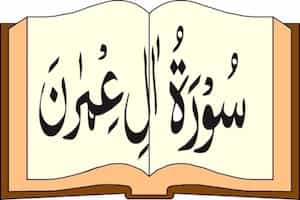 سُوْرَةُ اٰلِ عِمْرٰنَ